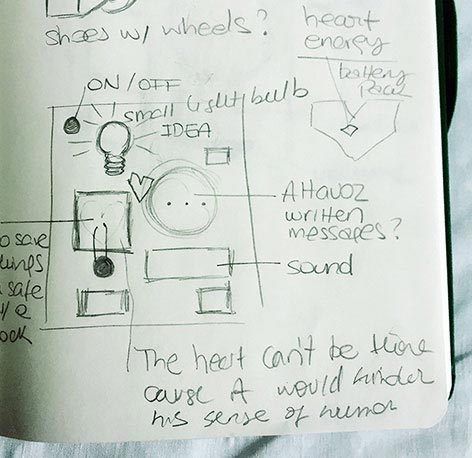 shoes w/ wheels?
heart
energy
battery
pack
ON/OFF
small light bulb
IDEA
written
messages?
sound
to save
safe
The heart can't be there
cause A would hinder
his sense of humor